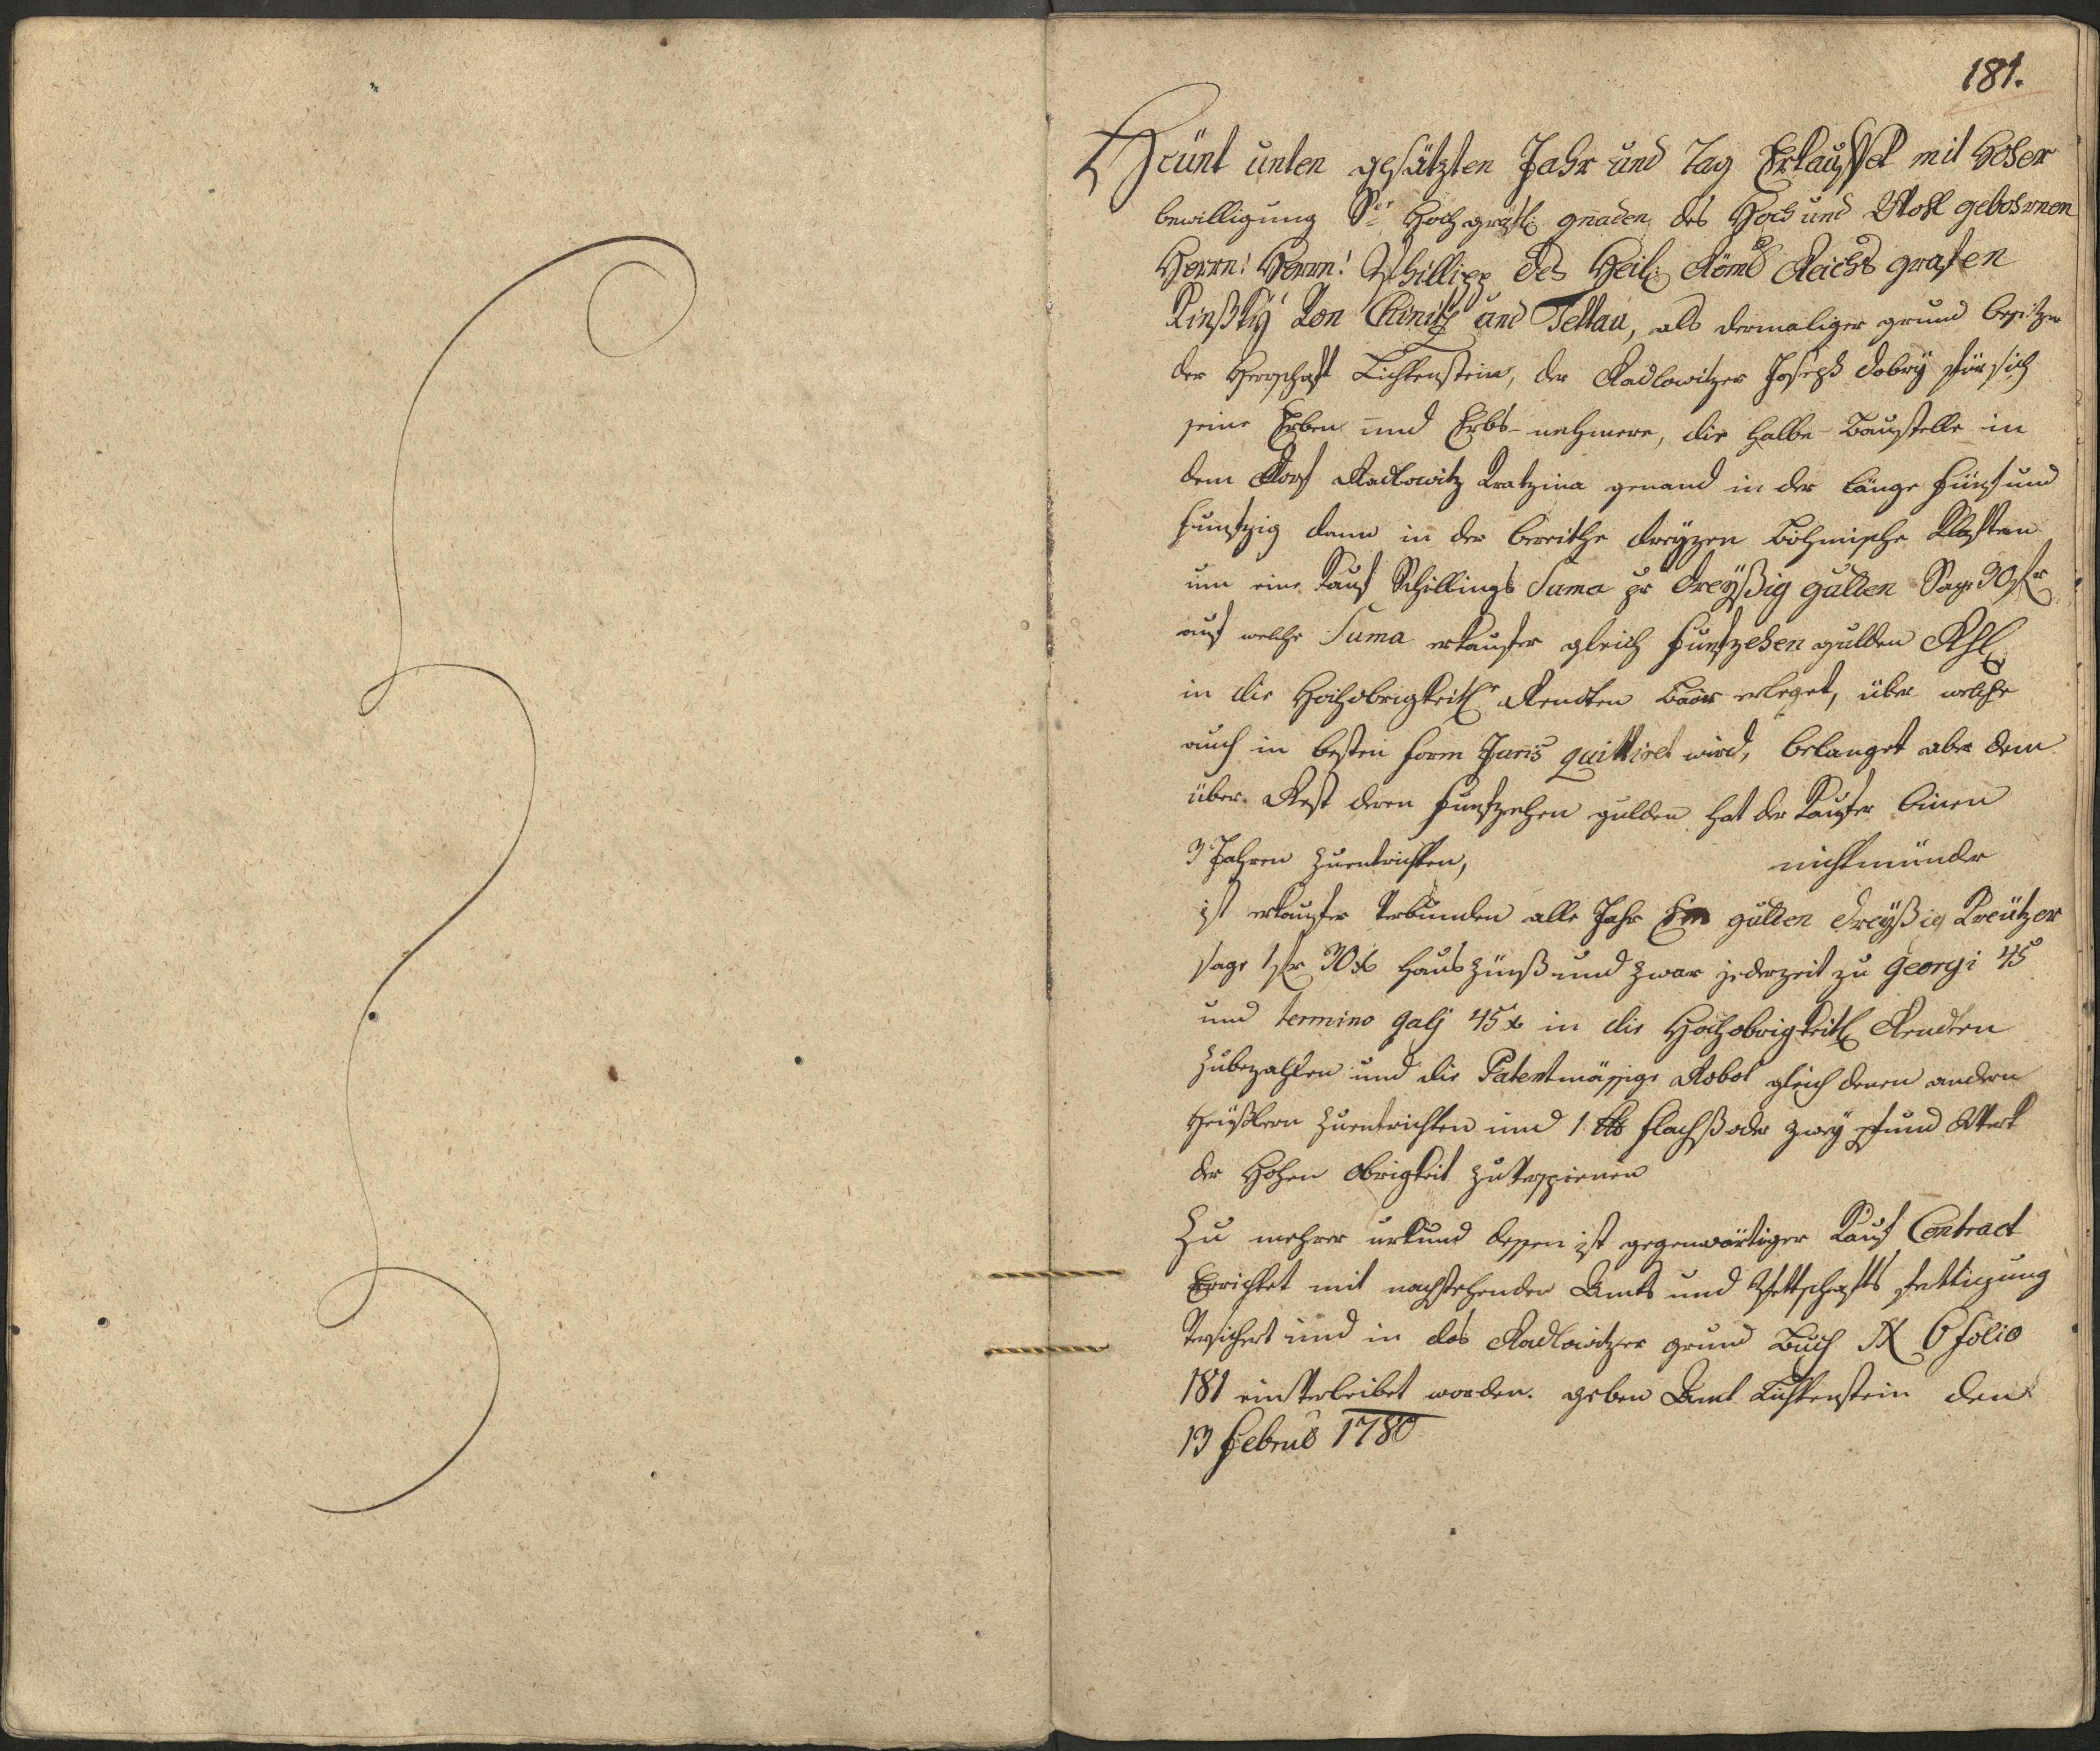 181.
Heünt unten gesätzten Jahr und Tag Erkauffet mit Hoher
bewilligung Sr Hochgräfl: gnaden des Hoch und Wohl gebohrnen
Herrn! Herrn! Phillipp des Heil: Römb Reichs grafen
Kinßkÿ Von Chinitz und Tettau, als dermaliger grund besitzer
der Herrschaft Lichtenstein, der Radlowitzer Joseph Dobrÿ für sich
seine Erben und Erbs-nehmere, die Halbe Baustelle in
dem Dorf Radlowitz Kratzina genand in der länge fünf und
funfzig dann in der breithe dreÿzen Böhmische Klaftern
um eine Kauf Schillings Suma pr Dreÿßig gulden Sage 30 fr
auf welche Suma erkaufer gleich funfzehen gulden Rhl:
in die Hochobrigkeitl: Rendten baar erleget, über welche
auch in besten form Juris quittiret wird, belanget aber dem
über Rest deren funfzehen gulden hat der Kaufer binen
3 Jahren zuentrichten, nichtmünder
ist erkaufer verbunden alle Jahr Ein gulden dreÿßig Kreützer
sage 1 fr 30 x Haus Zünß und zwar jederzeit zu Georgi 45
und termino galj 45 x in die Hochobrigkeitl: Rendten
zubezahlen und die Patentmässige Robot gleich denen andern
Heüßlern zuentrichten und 1 lb flachß oder zweÿ pfund Werk
der Hohen Obrigkeit zu verspienen
Zu mehrer urkund dessen ist gegenwärtiger Kauf Contract
Errichtet mit nachstehender Amts und Pettschafts fertigung
Versichert und in das Radlowitzer grund Buch N 6 folio
181 einverleibet worden. geben Amt Lichtenstein den
13 Februb 1780